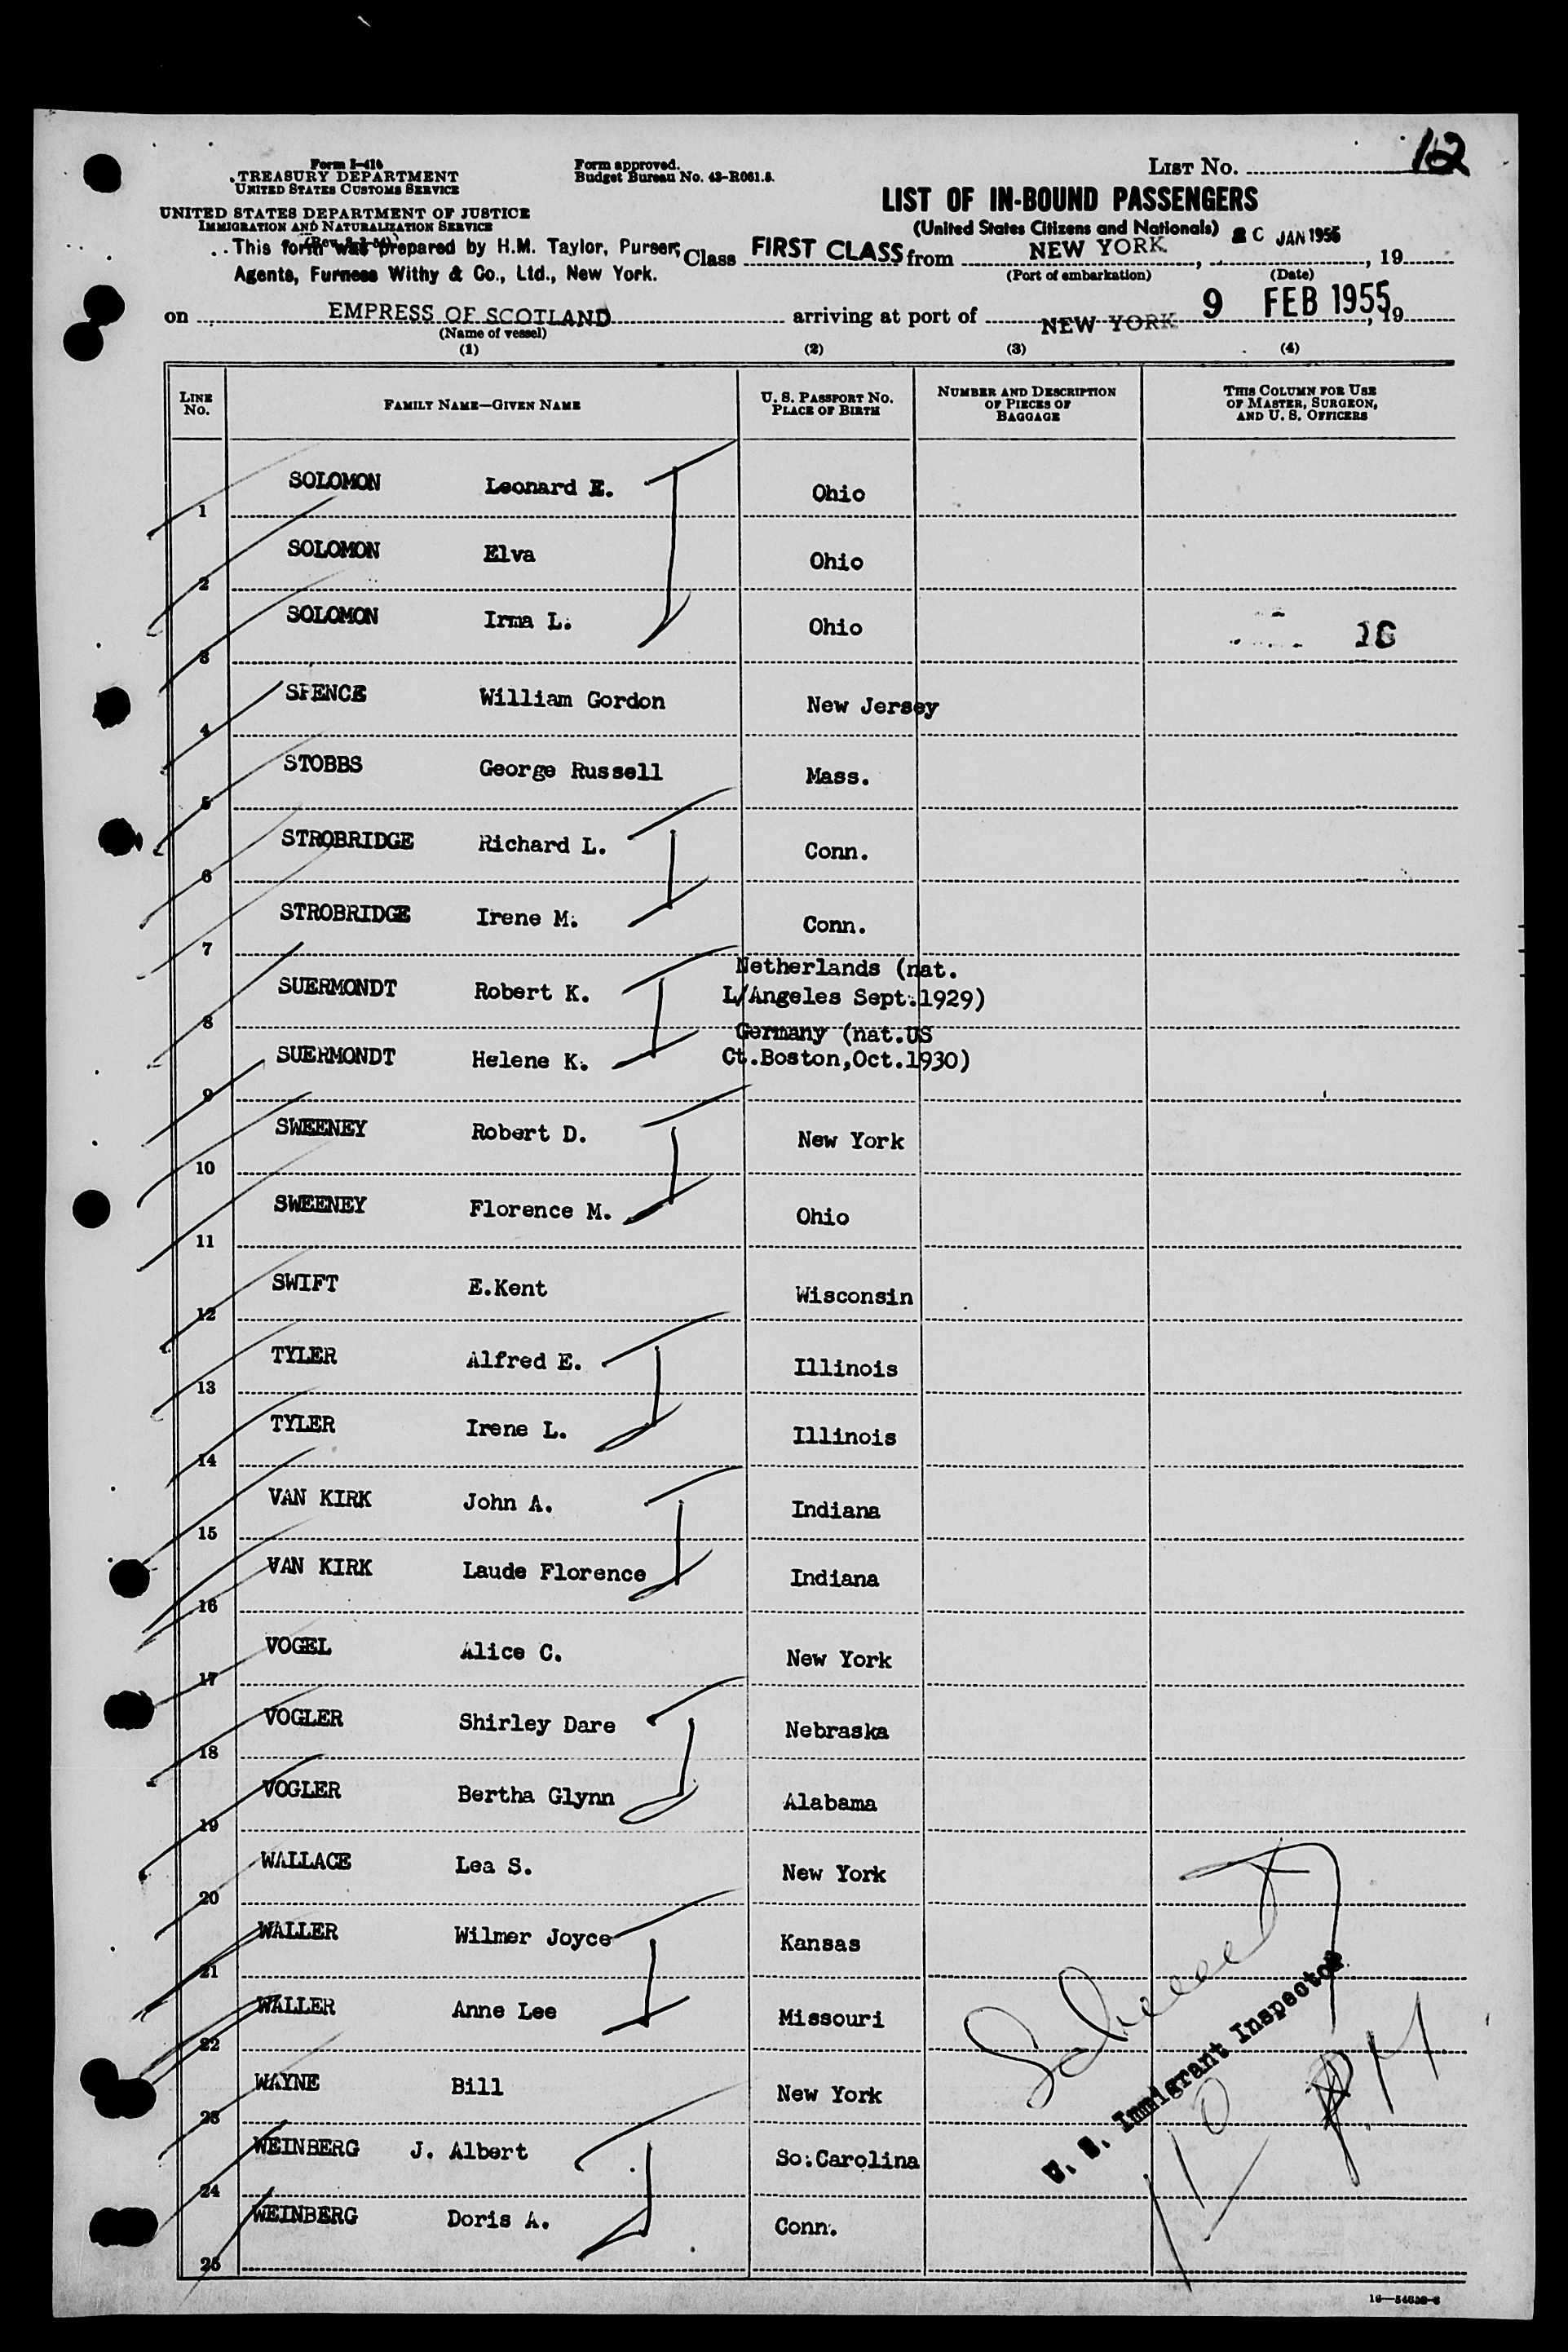 12
Form I-416
TREASURY DEPARTMENT
UNITED STATES CUSTOMS SERVICE
UNITED STATES DEPARTMENT OF JUSTICE
IMMIGRATION AND NATURALIZATION SERVICE
Form approved.
Budget Bureau No. 43-R061.
LIST No.
LIST OF IN-BOUND PASSENGERS
(United States Citizens and Nationals)
This form was prepared by H.M. Taylor, Purser,
Agents, Furness Withy & Co., Ltd., New York.
Class FIRST CLASS from NEW YORK, JAN 1955, 19
(Port of embarkation) (Date)
on EMPRESS OF SCOTLAND arriving at port of NEW YORK 9 FEB 1955, 19
(Name of vessel)
(1) (2) (3) (4)
LINE No. FAMILY NAME—GIVEN NAME U. S. PASSPORT No. PLACE OF BIRTH NUMBER AND DESCRIPTION OF PIECES OF BAGGAGE THIS COLUMN FOR USE OF MASTER, SURGEON, AND U. S. OFFICERS
1 SOLOMON Leonard E. Ohio
2 SOLOMON Elva Ohio
3 SOLOMON Irma L. Ohio
4 SPENCE William Gordon New Jersey
5 STOBBS George Russell Mass.
6 STROBRIDGE Richard L. Conn.
7 STROBRIDGE Irene M. Conn.
8 SUERMONDT Robert K. Netherlands (nat. L/Angeles Sept.1929)
9 SUERMONDT Helene K. Germany (nat.US Ct.Boston,Oct.1930)
10 SWEENEY Robert D. New York
11 SWEENEY Florence M. Ohio
12 SWIFT E.Kent Wisconsin
13 TYLER Alfred E. Illinois
14 TYLER Irene L. Illinois
15 VAN KIRK John A. Indiana
16 VAN KIRK Laude Florence Indiana
17 VOGEL Alice C. New York
18 VOGLER Shirley Dare Nebraska
19 VOGLER Bertha Glynn Alabama
20 WALLACE Lea S. New York
21 WALLER Wilmer Joyce Kansas
22 WALLER Anne Lee Missouri
23 WAYNE Bill New York
24 WEINBERG J. Albert So.Carolina
25 WEINBERG Doris A. Conn.
U. S. Immigrant Inspector